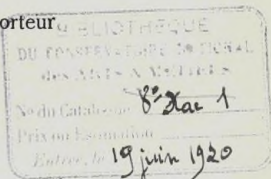 orteur
BIBLIOTHEQUE
DU CONSERVATOIRE NATIONAL
des ARTS & METIERS
No du Catalogue 8° Xae 1
Prix ou Estimation
Entrée, le 19 juin 1920